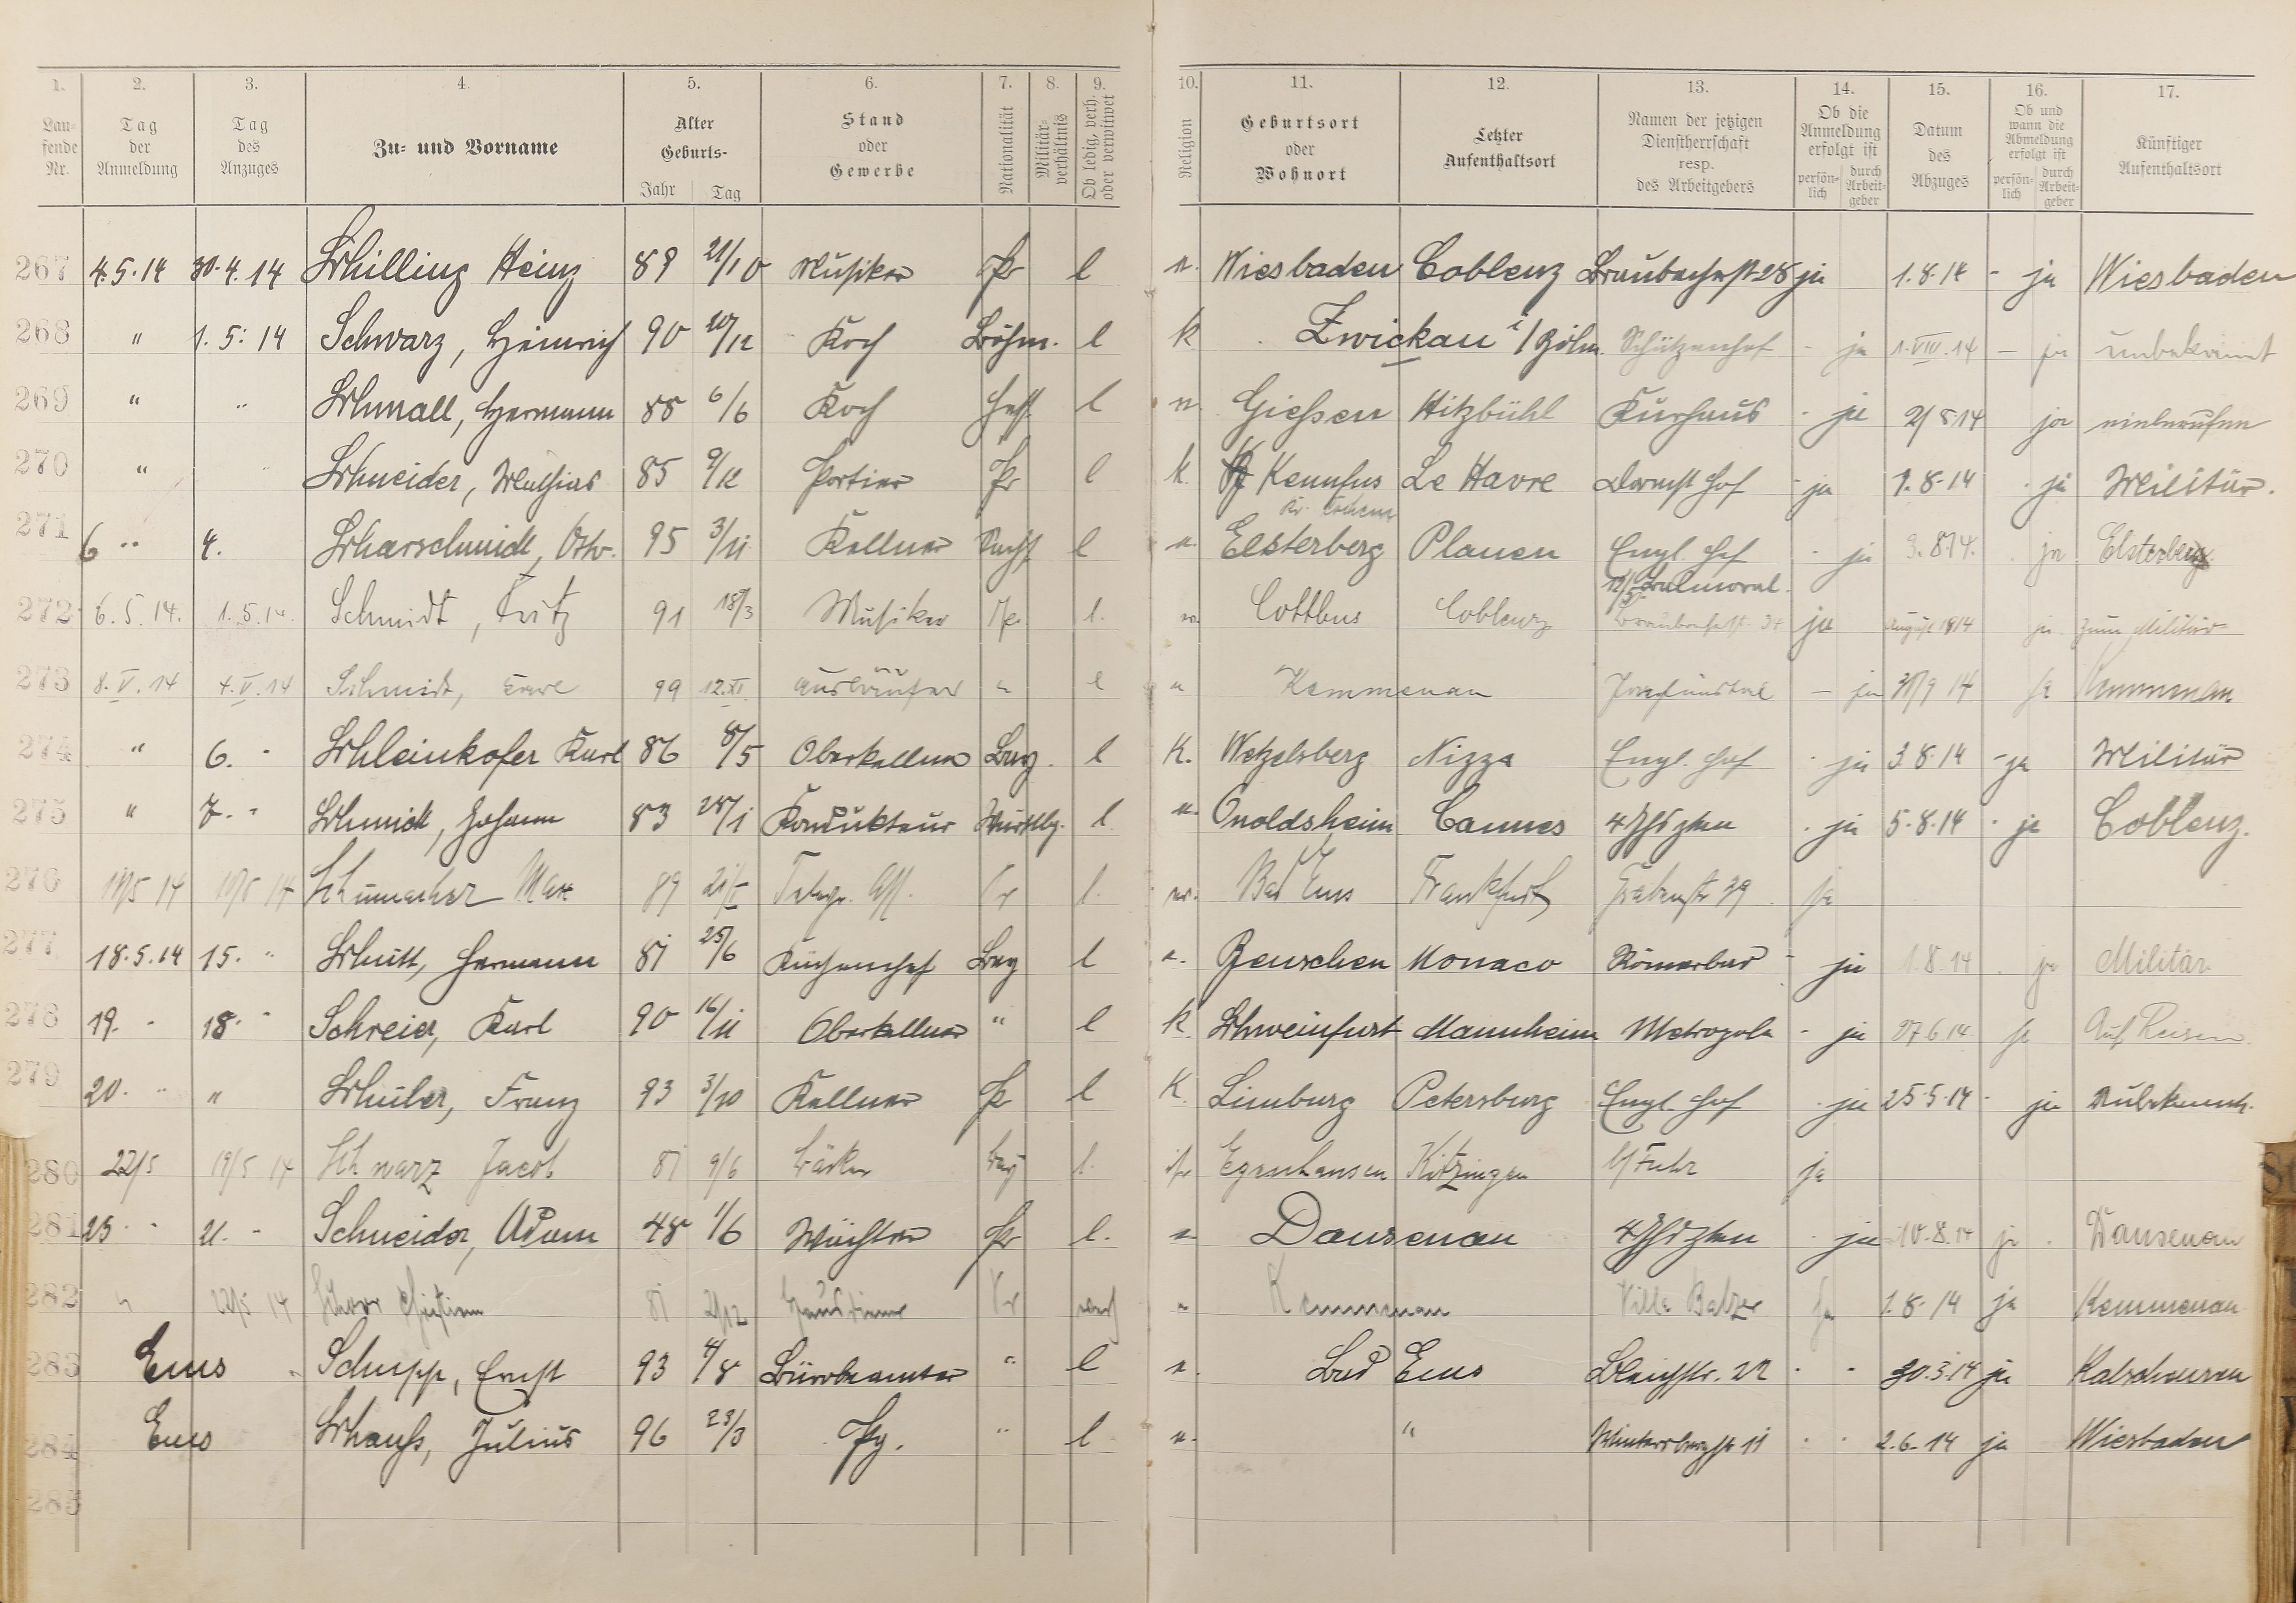 1. 2. 3. 4. 5. 6. 7. 8. 9. 10. 11. 12. 13. 14. 15. 16. 17.
Lau-fende Nr. Tag der Anmeldung Tag des Anzuges Zu- und Vorname Alter Geburts- Jahr Tag Stand oder Gewerbe Nationalität Militär-verhältnis Ob ledig, verh. oder verwitwet Religion Geburtsort oder Wohnort Letzter Aufenthaltsort Namen der jetzigen Dienstherrschaft resp. des Arbeitgebers Ob die Anmeldung erfolgt ist persön-lich durch Arbeit-geber Datum des Abzuges Ob und wann die Abmeldung erfolgt ist persön-lich durch Arbeit-geber Künftiger Aufenthaltsort
267 4.5.14 30.4.14 Schilling Heinz 89 21/10 Musiker Pr l Wiesbaden Coblenz Braubachstr 28 ja 1.8.14 - ja Wiesbaden
268 " 1.5.14 Schwarz, Heinrich 90 10/12 Koch Böhm. l k Zwickau i/Böhm. Schützenhof - ja 1.VIII.14 - ja unbekannt
269 " " Schmall, Hermann 88 6/6 Koch Hess l Giehsen Kitzbühl Kurhaus - ja 2/8.14 ja einberufen
270 " " Schneider, Mathias 85 9/12 Portier Pr l k. Kennfus Le Havre Darmst Hof - ja 1.8.14 . ja Militär.
271 6 " 4. Scharschmidt, Otto. 95 3/11 Kellner Sachs l Elsterberg Plauen Engl. Hof . ja 3.8.14. . ja Elsterberg
272 6.5.14. 1.5.14. Schmidt, Fritz 91 18/3 Musiker Pr. l. Cottbus Coblenz Balmoral ja August 1914 ja zum Militär
273 8.V.14 4.V.14 Schmidt, 99 12.XI. Ausläufer " l " Kemmenau - ja 30/9 14 ja Kemmenau
274 " 6. - Schleinkofer Karl 86 8/5 Oberkellner Bay. l K. Wetzelsberg Nizza Engl. Hof . ja 3.8.14 - ja Militär
275 " 7. - Schmidt, Johann 83 28/1 Kondukteur Württbg. l. Onoldsheim Cannes 4 Jhrsztn . ja 5.8.14 . ja Coblenz.
276 Schumacher Max 89 Telegr. Ass. Pr l. Bad Ems Frankfurt Grabenstr 39 ja
277 18.5.14 15. " Schütt, Hermann 81 25/6 Küchenchef Bay l Zeuschen Monaco Römerbad - ja 1.8.14 . ja Militär
278 19. - 18. - Schreier, Karl 90 16/11 Oberkellner " l k. Schweinfurt Mannheim Metropole - ja 27.6.14 ja Auf Reisen
279 20. " " Schuler, Franz 93 3/10 Kellner Pr l K. Limburg Petersburg Engl. Hof . ja 25.5.14 - ja Unbekannt.
280 22/5 19/5 14 Schwarz Jacob 81 9/6 Bäcker Bay l. isr Egenhausen Kitzingen b/Fuhr ja
281 25. - 21. - Schneider, Adam 48 1/6 Wächter Pr l. Dausenau 4 Jhrsztn . ja 10.8.14 ja . Dausenau
282 " 22/5 14 Christian 81 2/12 Hausdiener Pr verh " Kemmenau Villa Balzer ja 1.8.14 ja Kemmenau
283 Ems Schupp, Ernst 93 4/8 Bürobeamter " l Bad Ems Bleichstr. 22 . - 30.5.14 ja
284 Ems Schauss, Julius 96 23/3 " l " Wintersbergstr 11 . . 2.6.14 ja Wiesbaden
285